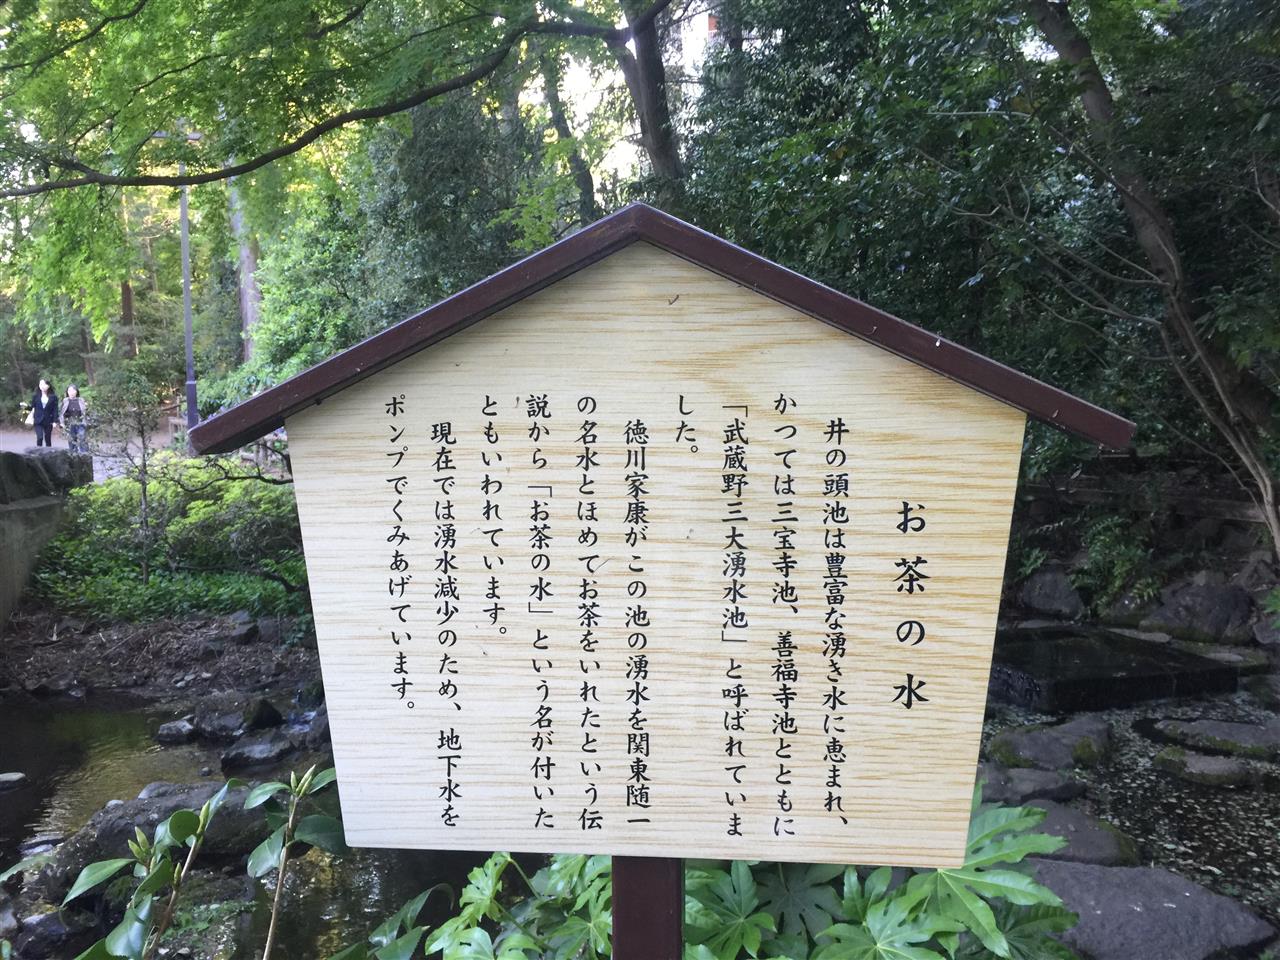 お茶の水
井の頭池は豊富な湧き水に恵まれ、
かつては三宝寺池、善福寺池とともに
「武蔵野三大湧水池」と呼ばれていま
した。
徳川家康がこの池の湧水を関東随一
の名水とほめてお茶をいれたという伝
説から「お茶の水」という名が付いた
ともいわれています。
現在では湧水減少のため、地下水を
ポンプでくみあげています。